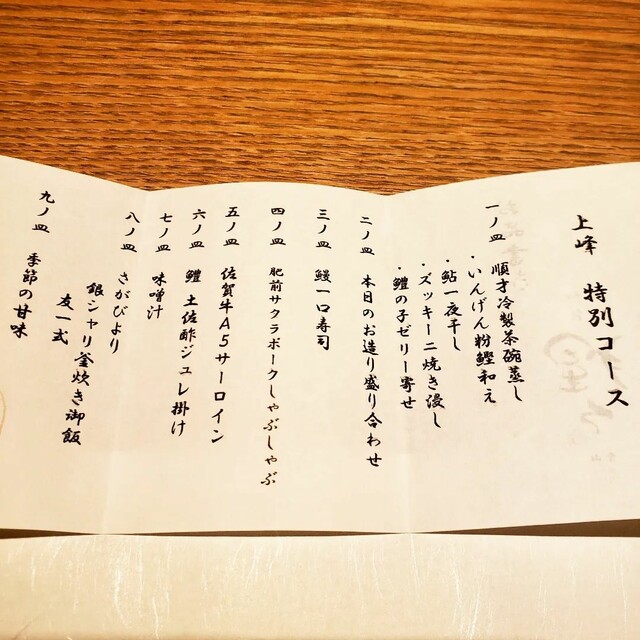 上峰　特別コース
一ノ皿　順才冷製茶碗蒸し
・いんげん粉鰹和え
・鮎一夜干し
・ズッキーニ焼き浸し
・鱧の子ゼリー寄せ
二ノ皿　本日のお造り盛り合わせ
三ノ皿　鰻一口寿司
四ノ皿　肥前サクラポークしゃぶしゃぶ
五ノ皿　佐賀牛A5サーロイン
六ノ皿　鱧　土佐酢ジュレ掛け
七ノ皿　味噌汁
八ノ皿　さがびより
銀シャリ釜炊き御飯
友一式
九ノ皿　季節の甘味